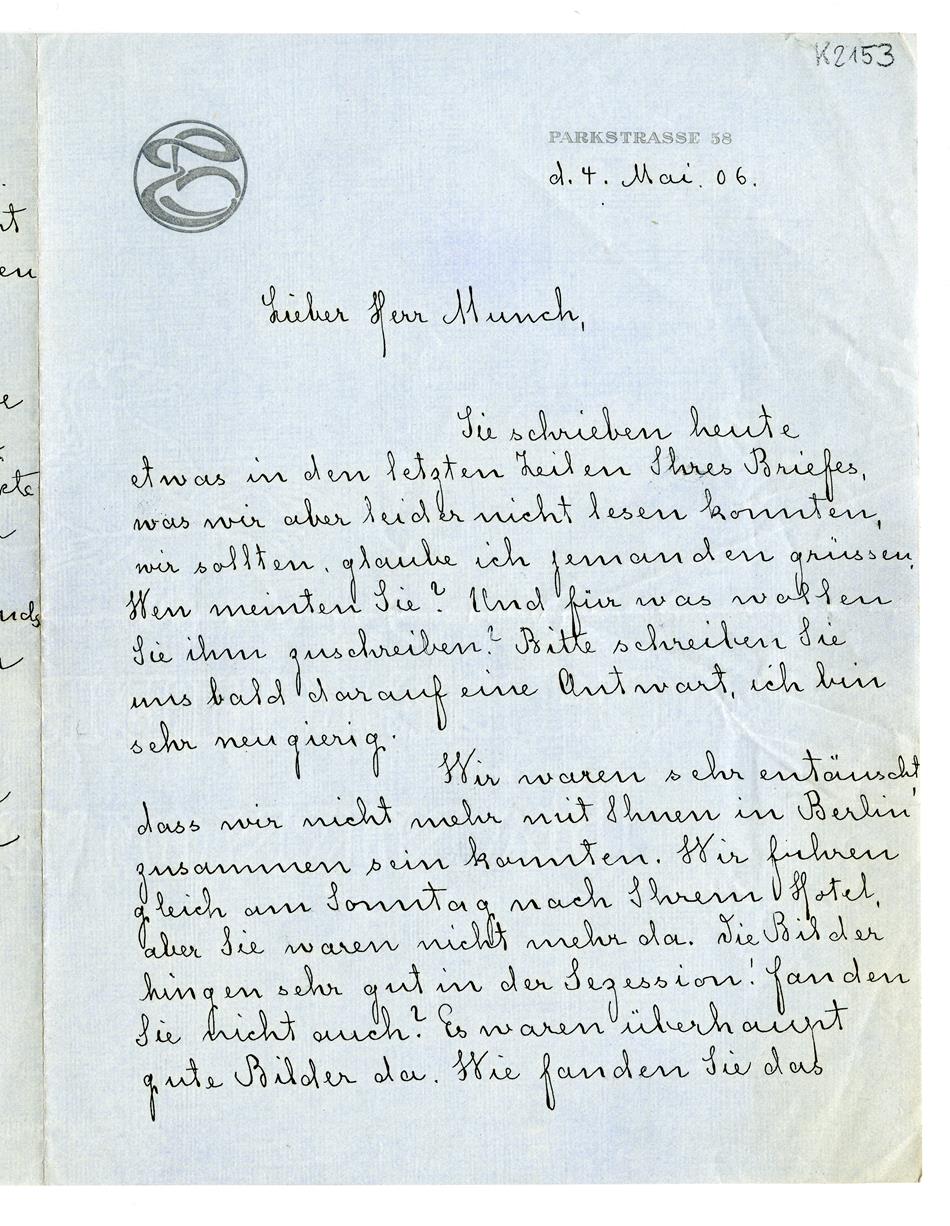 K2153
PARKSTRASSE 58
d. 4. Mai. 06.
Lieber Herr Munch,
Sie schrieben heute
etwas in den letzten Zeilen Ihres Briefes,
was wir aber leider nicht lesen konnten,
wir sollten, glaube ich jemanden grüssen.
Wen meinten Sie? Und für was wollen
Sie ihm zuschreiben? Bitte schreiben Sie
uns bald darauf eine Antwort, ich bin
sehr neugierig.
Wir waren sehr entäuscht,
dass wir nicht mehr mit Ihnen in Berlin
zusammen sein konnten. Wir fuhren
gleich am Sonntag nach Ihrem Hotel,
aber Sie waren nicht mehr da. Die Bilder
hingen sehr gut in der Sezession! fanden
Sie nicht auch? Es waren überhaupt
gute Bilder da. Wie fanden Sie das